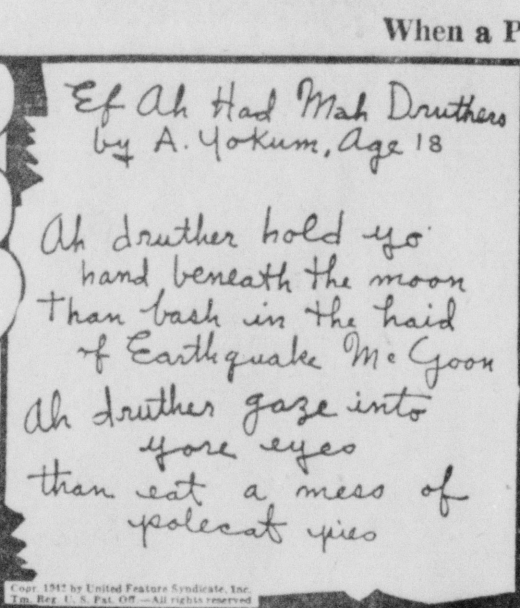 When a P
Ef Ah Had Mah Druthers
by A. Yokum, Age 18
Ah druther hold yo'
hand beneath the moon
Than bash in the haid
of Earthquake McGoon
Ah druther gaze into
yore eyes
than eat a mess of
polecat pies
Copr. 1942 by United Feature Syndicate, Inc.
Tm. Reg. U. S. Pat. Off.—All rights reserved